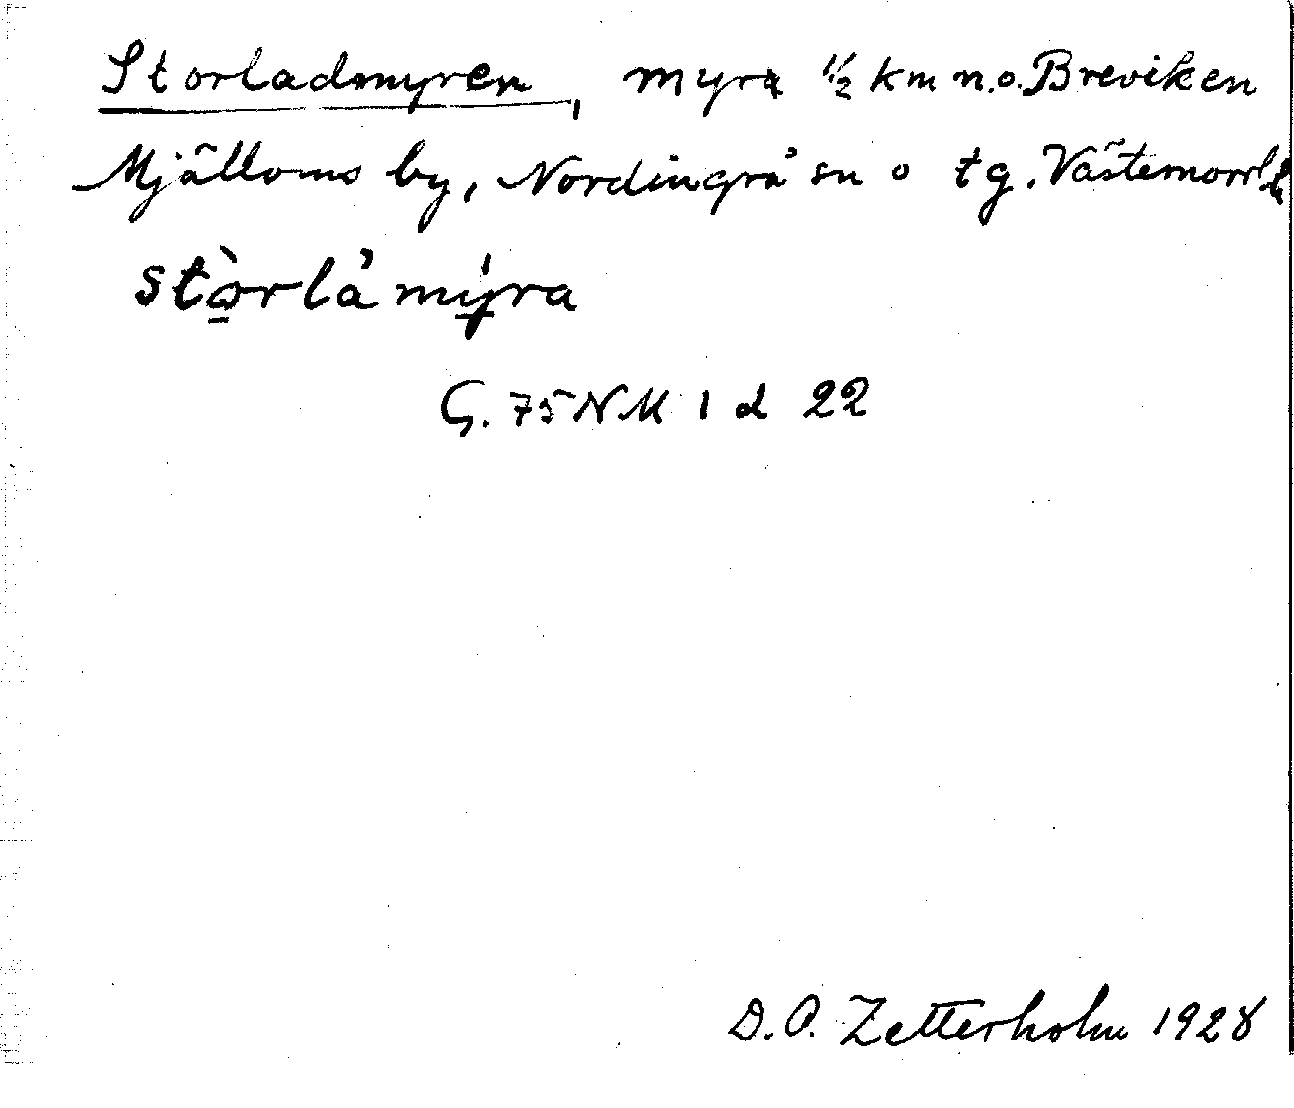 Storladmyren, myra 1/2 km n.o. Breviken
Mjälloms by, Nordingrå sn o tg. Västernorrl.
stòrlåmýra
G. 75 NK 1 d 22
D.O. Zetterholm 1928